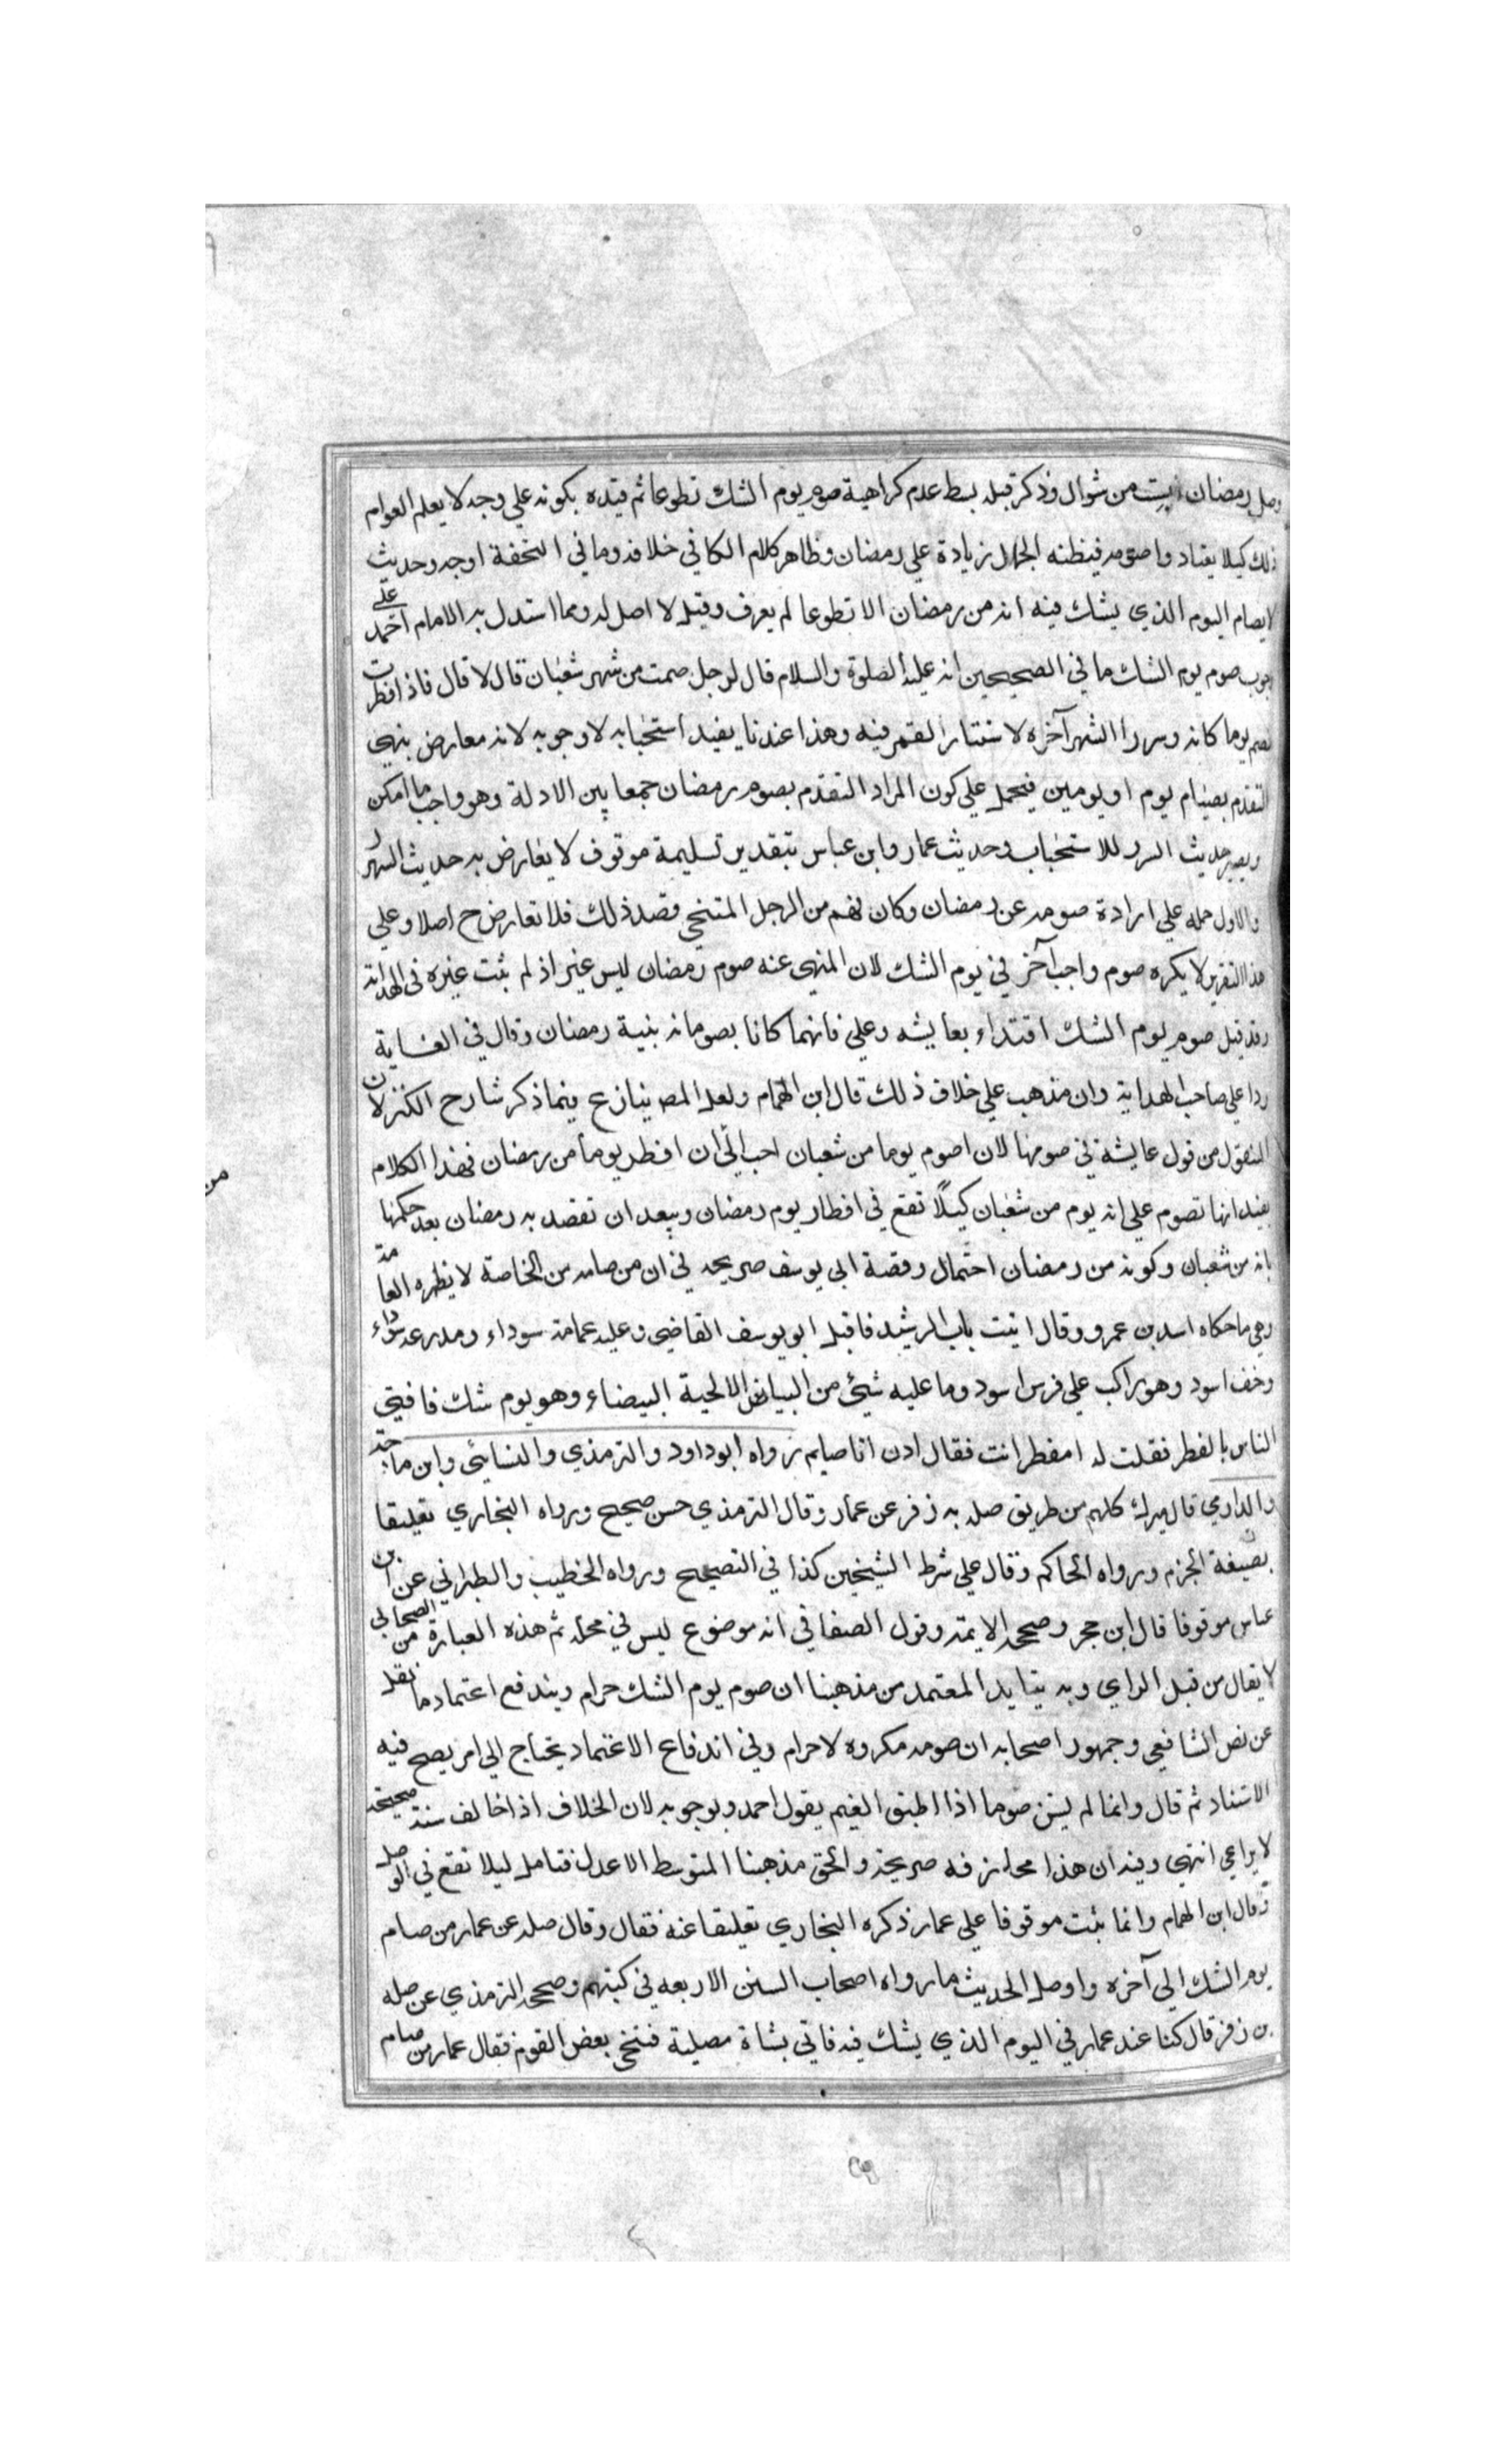 وصل رمضان بست من شوال وذكر قبله بسط عدم كراهية صوم يوم الشك تطوعا ثم قيده بكونه علي وجه لا يعلم العوام
ذلك كيلا يعتادوا صومه فيظنه الجهال زيادة علي رمضان وظاهر كلام الكافي خلافه وما في التحفة اوجه وحديث
لا يصام اليوم الذي يشك فيه انه من رمضان الا تطوعا لم يعرف وقيل لا اصل له ومما استدل به الامام احمد علي
وجوب صوم يوم الشك ما في الصحيحين انه عليه الصلوة والسلام قال لرجل صمت من شهر شعبان قال لا قال فاذا افطرت
فصم يوما كانه وسرر الشهر آخره لاستتار القمر فيه وهذا عندنا يفيد استحبابه لا وجوبه لانه معارض بنهي
التقدم بصيام يوم او يومين فيحمل علي كون المراد التقدم بصوم رمضان جمعا بين الادلة وهو واجب ما امكن
ويصير حديث السرر للاستحباب وحديث عمار وابن عباس بتقدير تسليمه موقوف لا يعارض به حديث السرر
والاول حمله علي ارادة صومه عن رمضان وكان فهم من الرجل المتنحي قصد ذلك فلا تعارض ح اصلا وعلي
هذا التقرير لا يكره صوم واجب آخر في يوم الشك لان المنهي عنه صوم رمضان ليس غير اذ لم يثبت غيره في الهداية
وقد قيل صوم يوم الشك اقتداء بعايشه وعلي فانهما كانا يصومانه بنية رمضان وقال في الغاية
ردا علي صاحب الهداية وان مذهب علي خلاف ذلك قال ابن الهمام ولعل المص ينازع فيما ذكر شارح الكنز لان
المنقول من قول عايشة في صومها لان اصوم يوما من شعبان احب الي ان افطر يوما من رمضان فهذا الكلام
يفيد انها تصوم علي انه يوم من شعبان كيلا تقع في افطار يوم رمضان ويبعد ان تقصد به رمضان بعد حكمها
بانه من شعبان وكونه من رمضان احتمال وقصة ابي يوسف صريحه في ان من صامه من الخاصة لا يظهره العامة
وهي ما حكاه اسد بن عمرو وقال اتيت باب الرشيد فاقبل ابو يوسف القاضي وعليه عمامة سوداء ومدرعة سوداء
وخف اسود وهو راكب علي فرس اسود وما عليه شيئ من البياض الا لحية البيضاء وهو يوم شك فافتي
الناس بالفطر فقلت له امفطر انت فقال ادن انا صايم رواه ابو داود والترمذي والنسائي وابن ماجة
والدارمي قال ميرك كلهم من طريق صله به زفر عن عمار وقال الترمذي حسن صحيح ورواه البخاري تعليقا
بصيغة الجزم ورواه الحاكم وقال علي شرط الشيخين كذا في التصحيح ورواه الخطيب والطبراني عن ابن
عباس موقوفا قال ابن حجر وصححه الايمة وقول الصغاني انه موضوع ليس في محله ثم هذه العبارة من الصحابي
لا يقال من قبل الراي وبه يتايد المعتمد من مذهبنا ان صوم يوم الشك حرام ويندفع اعتماد ما نقل
عن نص الشافعي وجمهور اصحابه ان صومه مكروه لا حرام وفي اندفاع الاعتماد يحتاج الي امر يصح فيه
الاستناد ثم قال وانما لم يسن صوما اذا اطبق الغيم بقول احمد وبوجوبه لان الخلاف اذا خالف سنة صحيحة
لا يراعي انتهي وفيه ان هذا محل نزفه صريحة والحق مذهبنا المتوسط الاعدل فتامل ليلا تقع في الوحل
وقال ابن الهمام وانما يثبت موقوفا علي عمار ذكره البخاري تعليقا عنه فقال وقال صله عن عمار من صام
يوم الشك الي آخره واوصل الحديث ما رواه اصحاب السنن الاربعه في كتبهم وصححه الترمذي عن صله
بن زفر قال كنا عند عمار في اليوم الذي يشك فيه فاتي بشاة مصلية فتنحي بعض القوم فقال عمار من صام